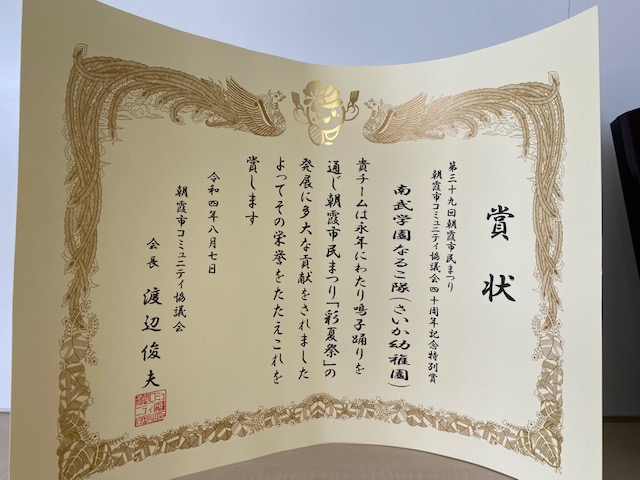 賞状
第三十九回朝霞市民まつり
朝霞市コミュニティ協議会四十周年記念特別賞
南武学園なるこ隊(さいか幼稚園)
貴チームは永年にわたり鳴子踊りを
通じ朝霞市民まつり「彩夏祭」の
発展に多大な貢献をされました
よってその栄誉をたたえこれを
賞します
令和四年八月七日
朝霞市コミュニティ協議会
会長 渡辺俊夫